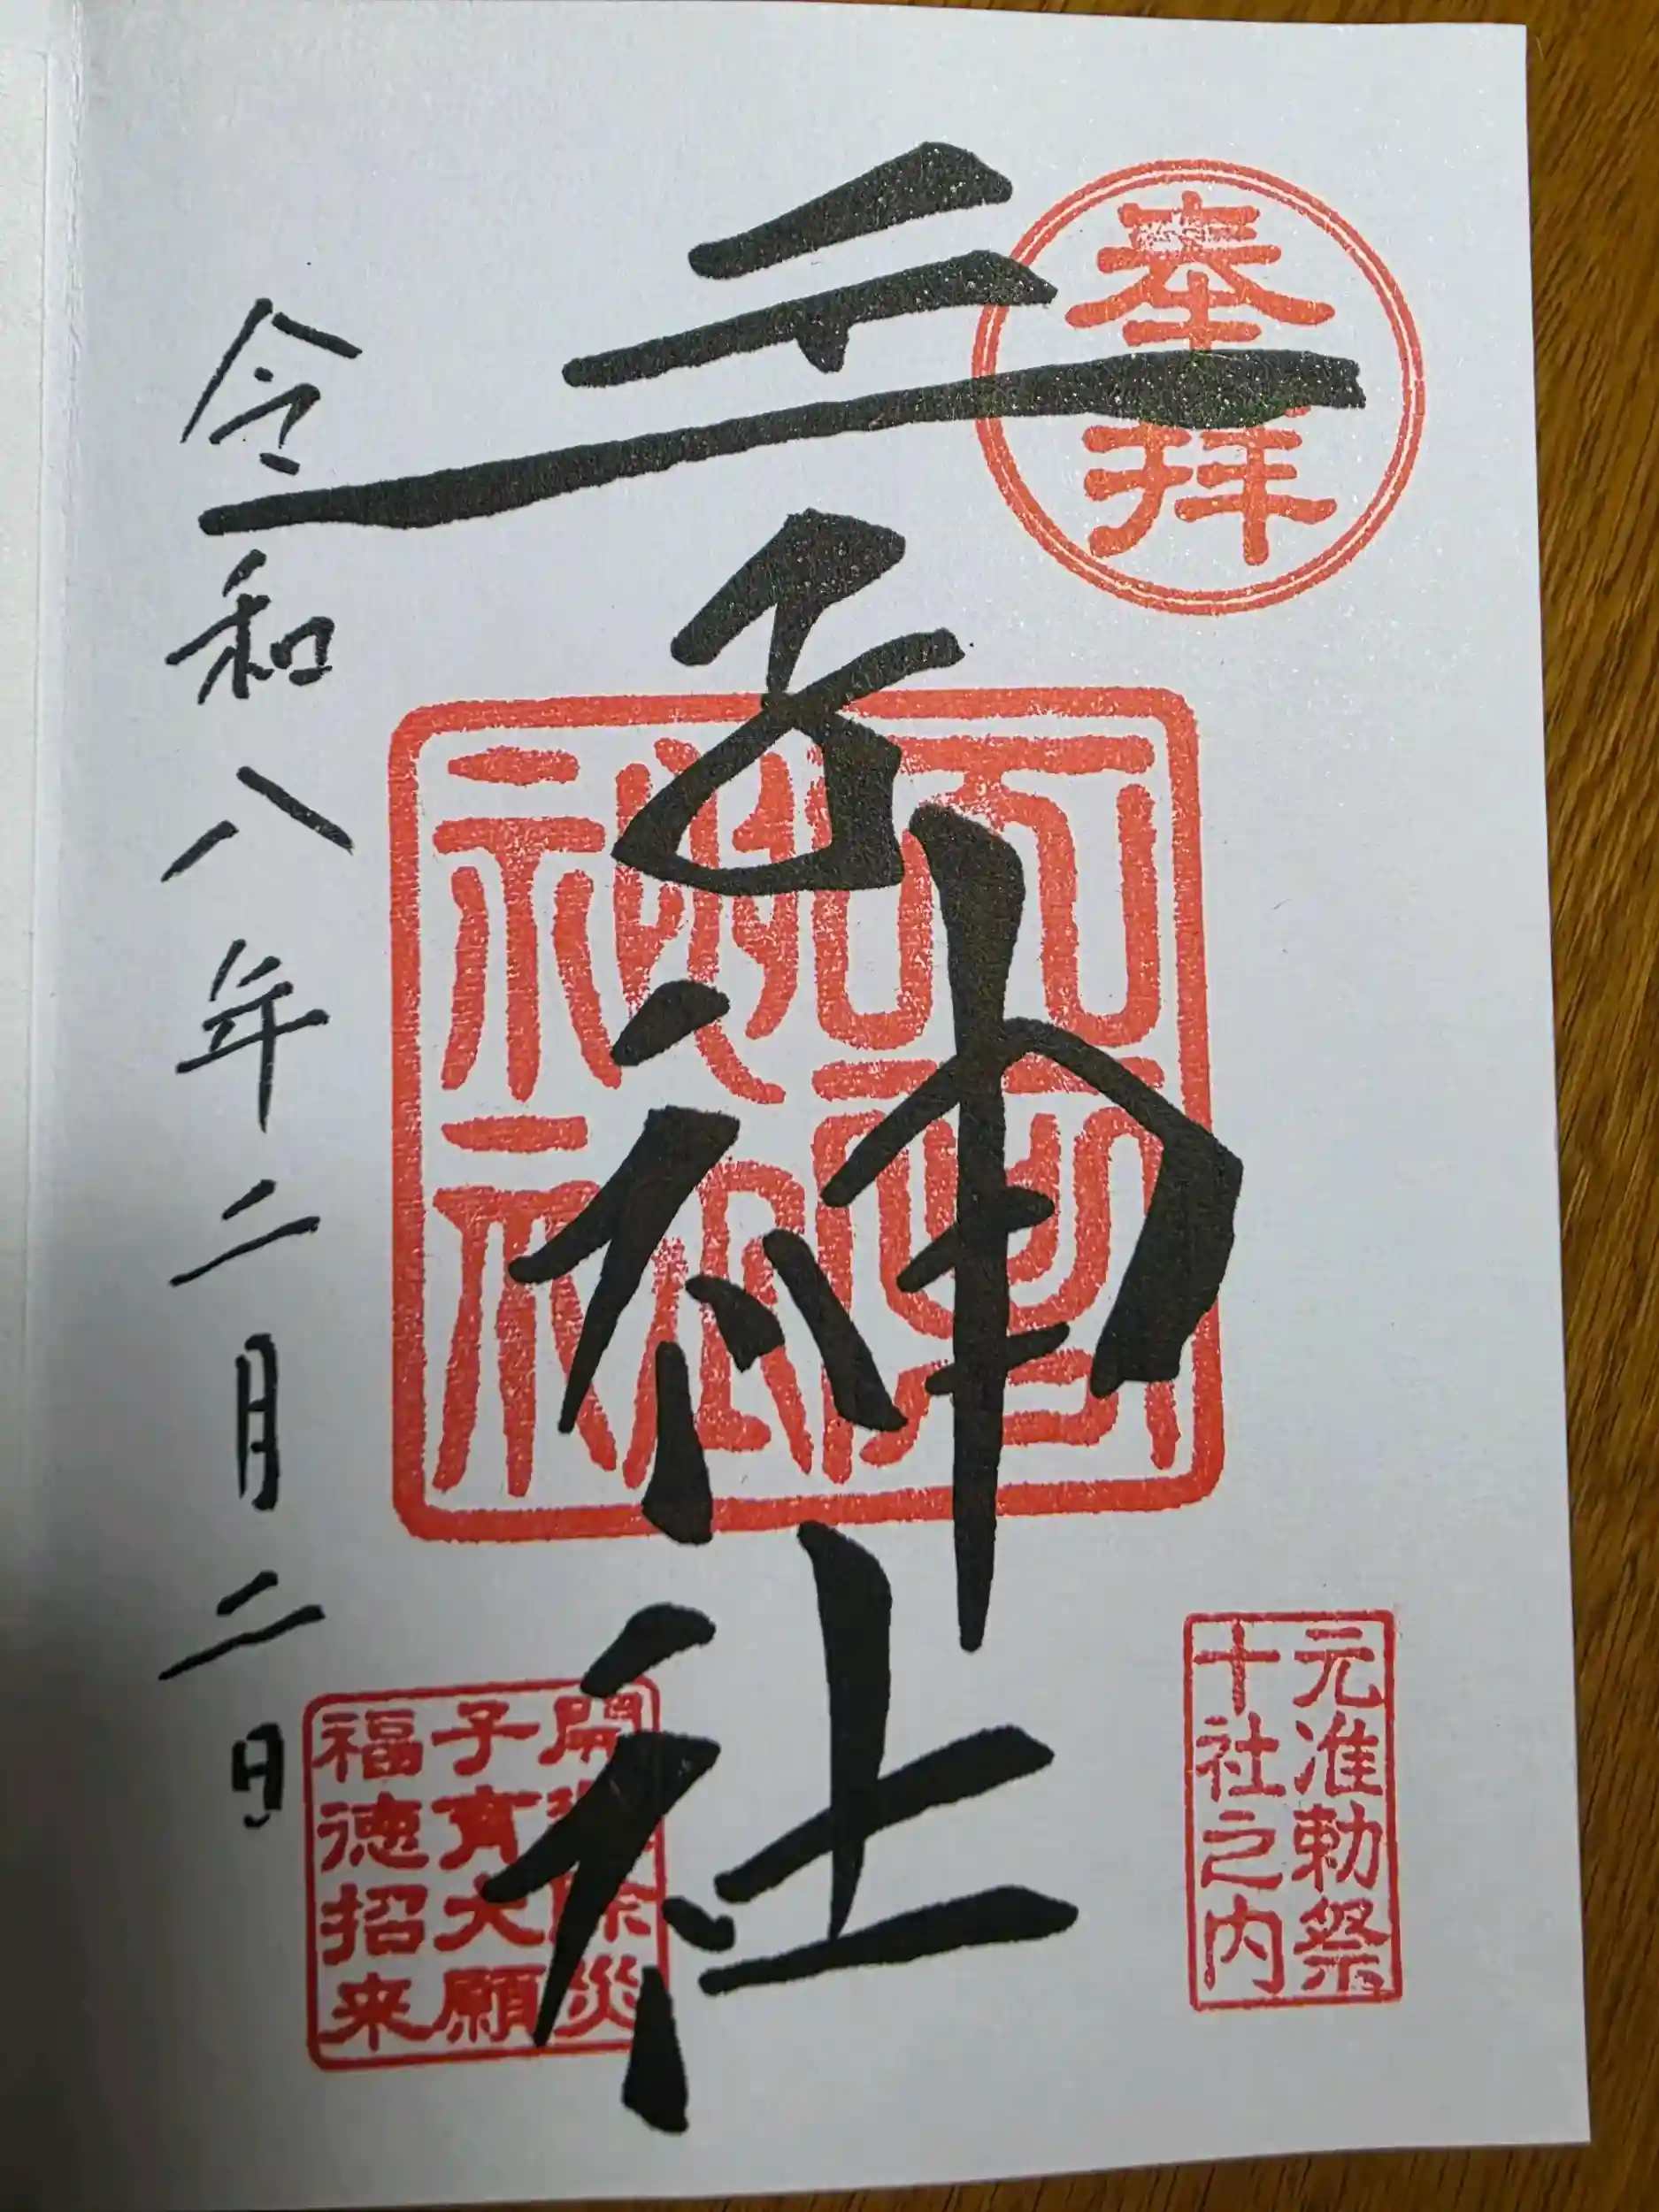 奉拝
元准勅祭
十社之内
王子神社
開運除災
子育大願
福徳招来
令和八年二月二日